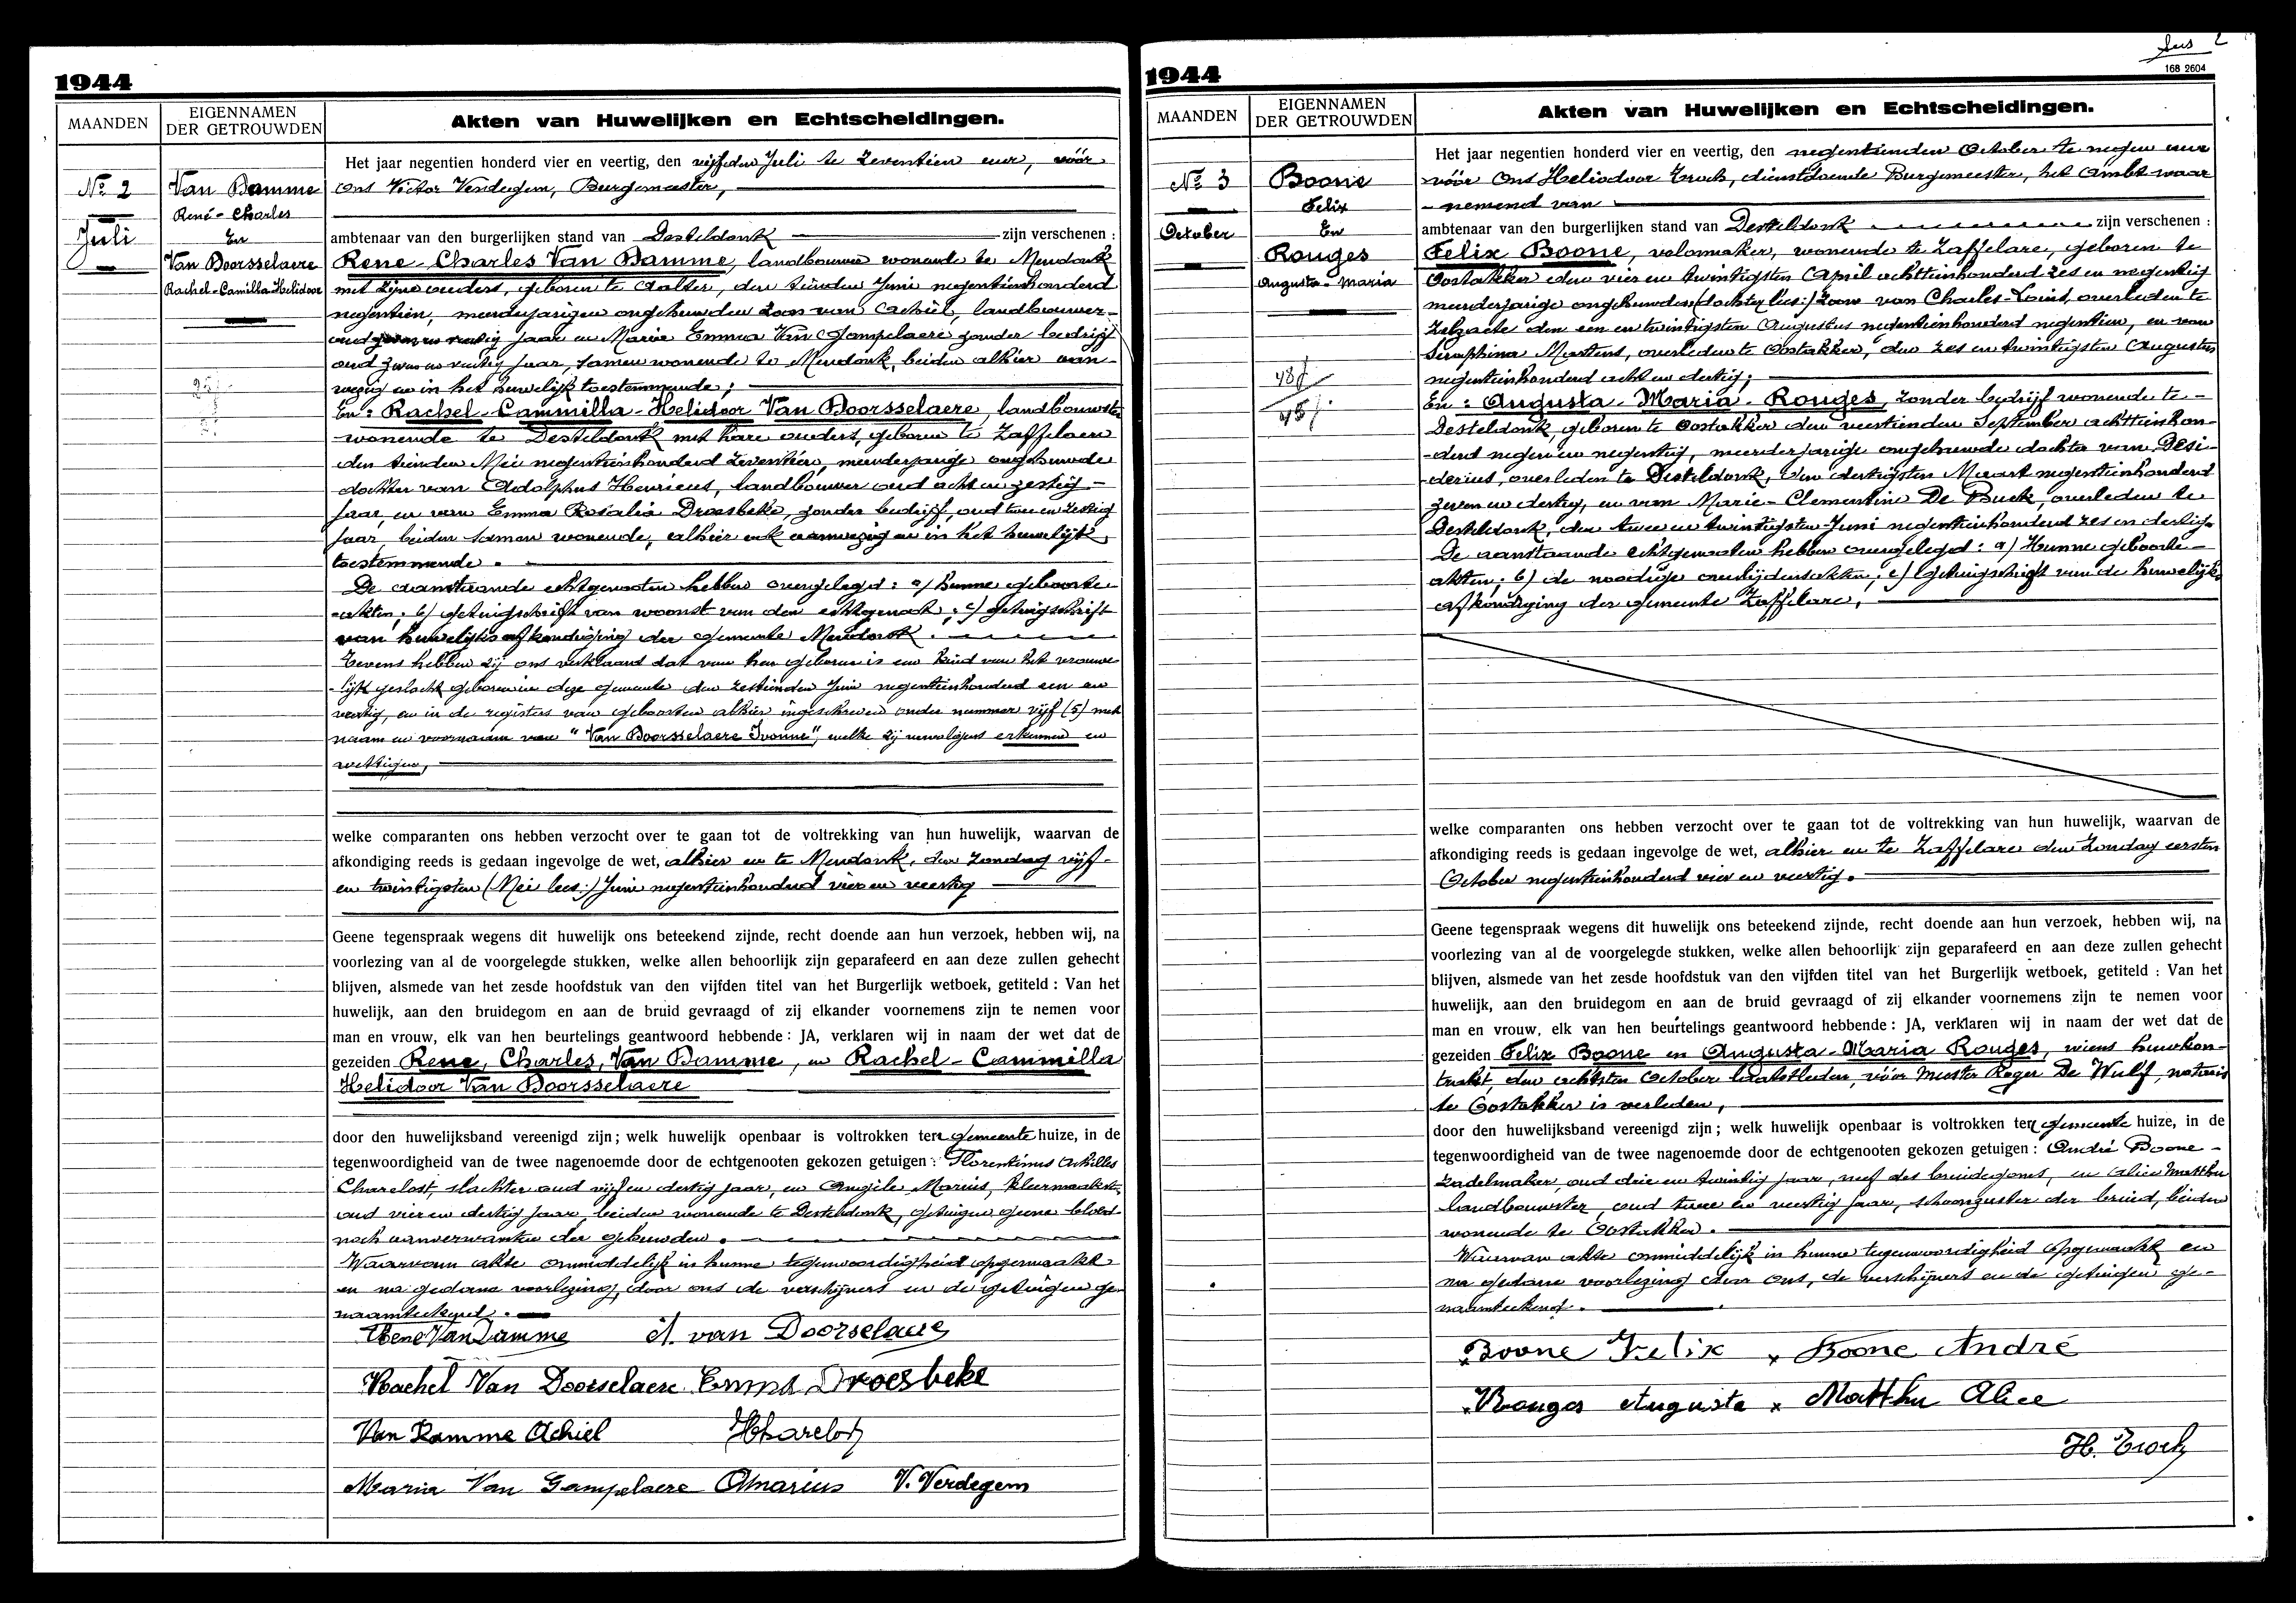 1944
MAANDEN
EIGENNAMEN
DER GETROUWDEN
Akten van Huwelijken en Echtscheidingen.
No 2
Juli
Van Damme
René-Charles
En
Van Doorsselaere
Rachel-Camilla-Helidoor
Het jaar negentien honderd vier en veertig, den vijfden Juli te zeventien uur, vóór
ons Victor Verdegem, Burgemeester,
ambtenaar van den burgerlijken stand van Desteldonk zijn verschenen :
Rene-Charles Van Damme, landbouwer wonende te Mendonk
met zijne ouders, geboren te Aalter, den tienden Juni negentienhonderd
negentien, meerderjarigen ongehuwden zoon van Achiel, landbouwer
oud en veertig jaar en Maria Emma Van Gampelaere zonder bedrijf
oud zeven en veertig jaar, samen wonende te Mendonk, beiden alhier aan-
wezig en in het huwelijk toestemmende ;
En : Rachel-Cammilla-Helidoor Van Doorsselaere, landbouwster
wonende te Desteldonk met hare ouders, geboren te Zaffelaere
den tienden Mei negentienhonderd zeventien, meerderjarige ongehuwde
dochter van Adolphus Henricus, landbouwer oud acht en zestig-
jaar, en van Emma Rosalia Droesbeke, zonder bedrijf, oud twee en zestig
jaar, beiden samen wonende, alhier ook aanwezig en in het huwelijk
toestemmende.
De aanstaande echtgenooten hebben overgelegd : a/ hunne geboorte-
-akten ; b/ getuigschrift van woonst van den echtgenoot ; c/ getuigschrift
van huwelijksafkondiging der gemeente Mendonk.
Tevens hebben zij ons verklaard dat van hen geboren is een kind van het vrouwe-
-lijk geslacht geboren in deze gemeente den zestienden Juni negentienhonderd een en
veertig, en in de registers van geboorten alhier ingeschreven onder nummer vijf (5) met
naam en voornaam van "Van Doorsselaere Ivonne", welke zij vervolgens erkennen en
wettigen,
welke comparanten ons hebben verzocht over te gaan tot de voltrekking van hun huwelijk, waarvan de
afkondiging reeds is gedaan ingevolge de wet, alhier en te Mendonk, den Zondag vijf-
en twintigsten (Mei lees:) Juni negentienhonderd vier en veertig
Geene tegenspraak wegens dit huwelijk ons beteekend zijnde, recht doende aan hun verzoek, hebben wij, na
voorlezing van al de voorgelegde stukken, welke allen behoorlijk zijn geparafeerd en aan deze zullen gehecht
blijven, alsmede van het zesde hoofdstuk van den vijfden titel van het Burgerlijk wetboek, getiteld : Van het
huwelijk, aan den bruidegom en aan de bruid gevraagd of zij elkander voornemens zijn te nemen voor
man en vrouw, elk van hen beurtelings geantwoord hebbende : JA, verklaren wij in naam der wet dat de
gezeiden Rene, Charles, Van Damme, en Rachel-Cammilla
Helidoor Van Doorsselaere
door den huwelijksband vereenigd zijn ; welk huwelijk openbaar is voltrokken ten gemeente huize, in de
tegenwoordigheid van de twee nagenoemde door de echtgenooten gekozen getuigen : Florentinus Achilles
Charelost, slachter oud vijf en dertig jaar, en Angèle Marius, kleermaakster,
oud vier en dertig jaar, beiden wonende te Desteldonk, getuigen geene bloed-
noch aanverwanten der gehuwden.
Waarvan akte onmiddelijk in hunne tegenwoordigheid opgemaakt
en na gedane voorlezing, door ons de verschijners en de getuigen ge-
naamteekend.
Rene Van Damme A. van Doorselaere
Rachel Van Doorselaere Emma Droesbeke
Van Damme Achiel
Maria Van Gampelaere AMarius V. Verdegem
1944
168 2604
MAANDEN
EIGENNAMEN
DER GETROUWDEN
Akten van Huwelijken en Echtscheidingen.
No 3
October
Boone
Felix
En
Rouges
Augusta-Maria
Het jaar negentien honderd vier en veertig, den negentienden October te negen uur
vóór Ons Heliodoor Trock, dienstdoende Burgemeester, het ambt waar
-nemend van
ambtenaar van den burgerlijken stand van Desteldonk zijn verschenen :
Felix Boone, wonende te Zaffelare, geboren te
Oostakker den vier en twintigsten April achttienhonderd zes en negentig
meerderjarige ongehuwden (dochter lees:) zoon van Charles-Louis, overleden te
Zelzate den een en twintigsten Augustus negentienhonderd negentien, en van
Seraphina Martens, overleden te Oostakker, den zes en twintigsten Augustus
negentienhonderd acht en dertig ;
En : Augusta-Maria-Rouges, zonder bedrijf wonende te-
Desteldonk, geboren te Oostakker den veertienden September achttienhon-
-derd negen en negentig, meerderjarige ongehuwde dochter van Desi-
-derius, overleden te Desteldonk, den dertigsten Maart negentienhonderd
zeven en dertig, en van Marie-Clementine De Buck, overleden te
Desteldonk, den twee en twintigsten Juni negentienhonderd zes en dertig.
De aanstaande echtgenooten hebben overgelegd : a/ Hunne geboorte-
akten ; b/ de noodige overlijdensakten ; c/ getuigschrift van de huwelijks-
afkondiging der gemeente Zaffelare,
48j
45j
welke comparanten ons hebben verzocht over te gaan tot de voltrekking van hun huwelijk, waarvan de
afkondiging reeds is gedaan ingevolge de wet, alhier en te Zaffelare den Zondag eersten
October negentienhonderd vier en veertig.
Geene tegenspraak wegens dit huwelijk ons beteekend zijnde, recht doende aan hun verzoek, hebben wij, na
voorlezing van al de voorgelegde stukken, welke allen behoorlijk zijn geparafeerd en aan deze zullen gehecht
blijven, alsmede van het zesde hoofdstuk van den vijfden titel van het Burgerlijk wetboek, getiteld : Van het
huwelijk, aan den bruidegom en aan de bruid gevraagd of zij elkander voornemens zijn te nemen voor
man en vrouw, elk van hen beurtelings geantwoord hebbende : JA, verklaren wij in naam der wet dat de
gezeiden Felix Boone en Augusta-Maria Rouges, wiens huwkon-
trakt, den achtsten October laatstleden, vóór Meester Roger De Wulf, notaris
te Oostakker is verleden,
door den huwelijksband vereenigd zijn ; welk huwelijk openbaar is voltrokken ten gemeente huize, in de
tegenwoordigheid van de twee nagenoemde door de echtgenooten gekozen getuigen : André Boone-
zadelmaker, oud drie en twintig jaar, neef des bruidegoms, en Alice Matthu
landbouwster, oud twee en veertig jaar, schoonzuster der bruid, beiden
wonende te Oostakker.
Waarvan akte onmiddelijk in hunne tegenwoordigheid opgemaakt en
na gedane voorlezing door ons, de verschijners en de getuigen ge-
naamteekend.
x Boone Felix x Boone André
x Rouges Augusta x Matthu Alice
H. Trock